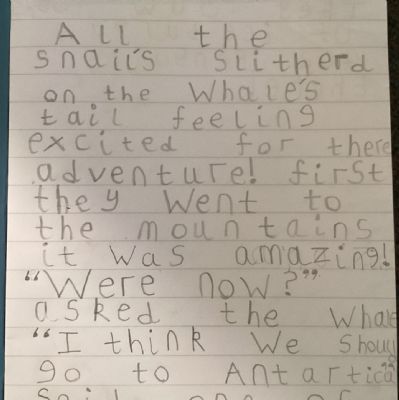 All the
snail's Slitherd
on the Whale's
tail feeling
excited for there
adventure! first
they Went to
the mountains
it was amazing!
"Were now?"
asked the Whale
"I think We Shoul
go to Antartica